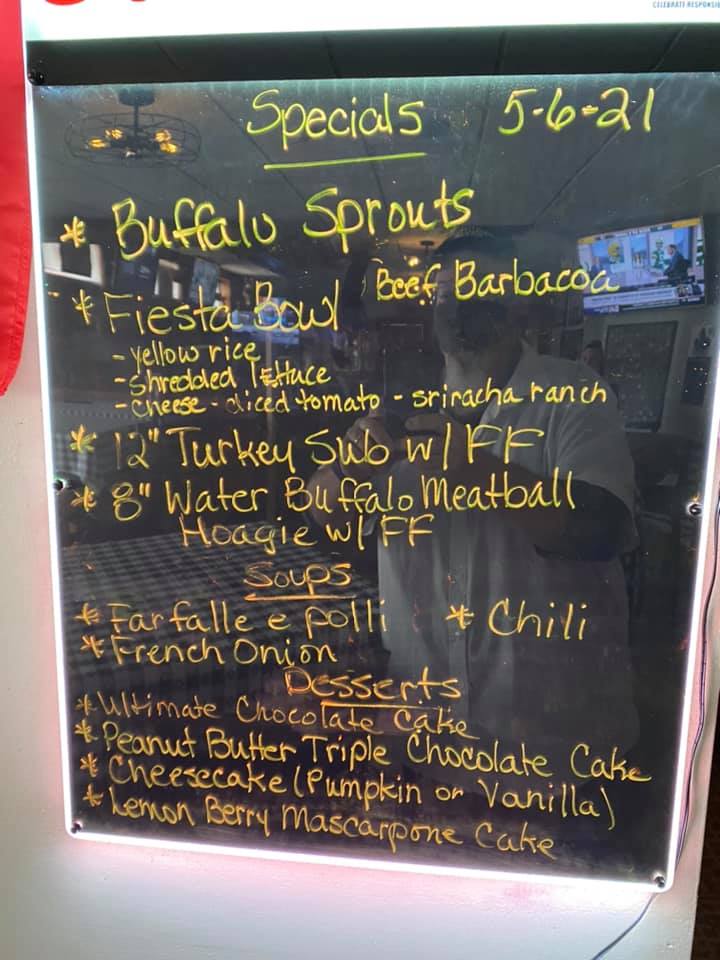 CELEBRATE RESPONSI
Specials 5-6-21
* Buffalo Sprouts
* Fiesta Bowl Beef Barbacoa
- yellow rice
- shredded lettuce
- cheese - diced tomato - sriracha ranch
* 12" Turkey Sub w/ FF
* 8" Water Buffalo Meatball
Hoagie w/ FF
Soups
* Farfalle e polli * Chili
* French Onion
Desserts
* Ultimate Chocolate Cake
* Peanut Butter Triple Chocolate Cake
* Cheesecake (Pumpkin or Vanilla)
* Lemon Berry Mascarpone Cake